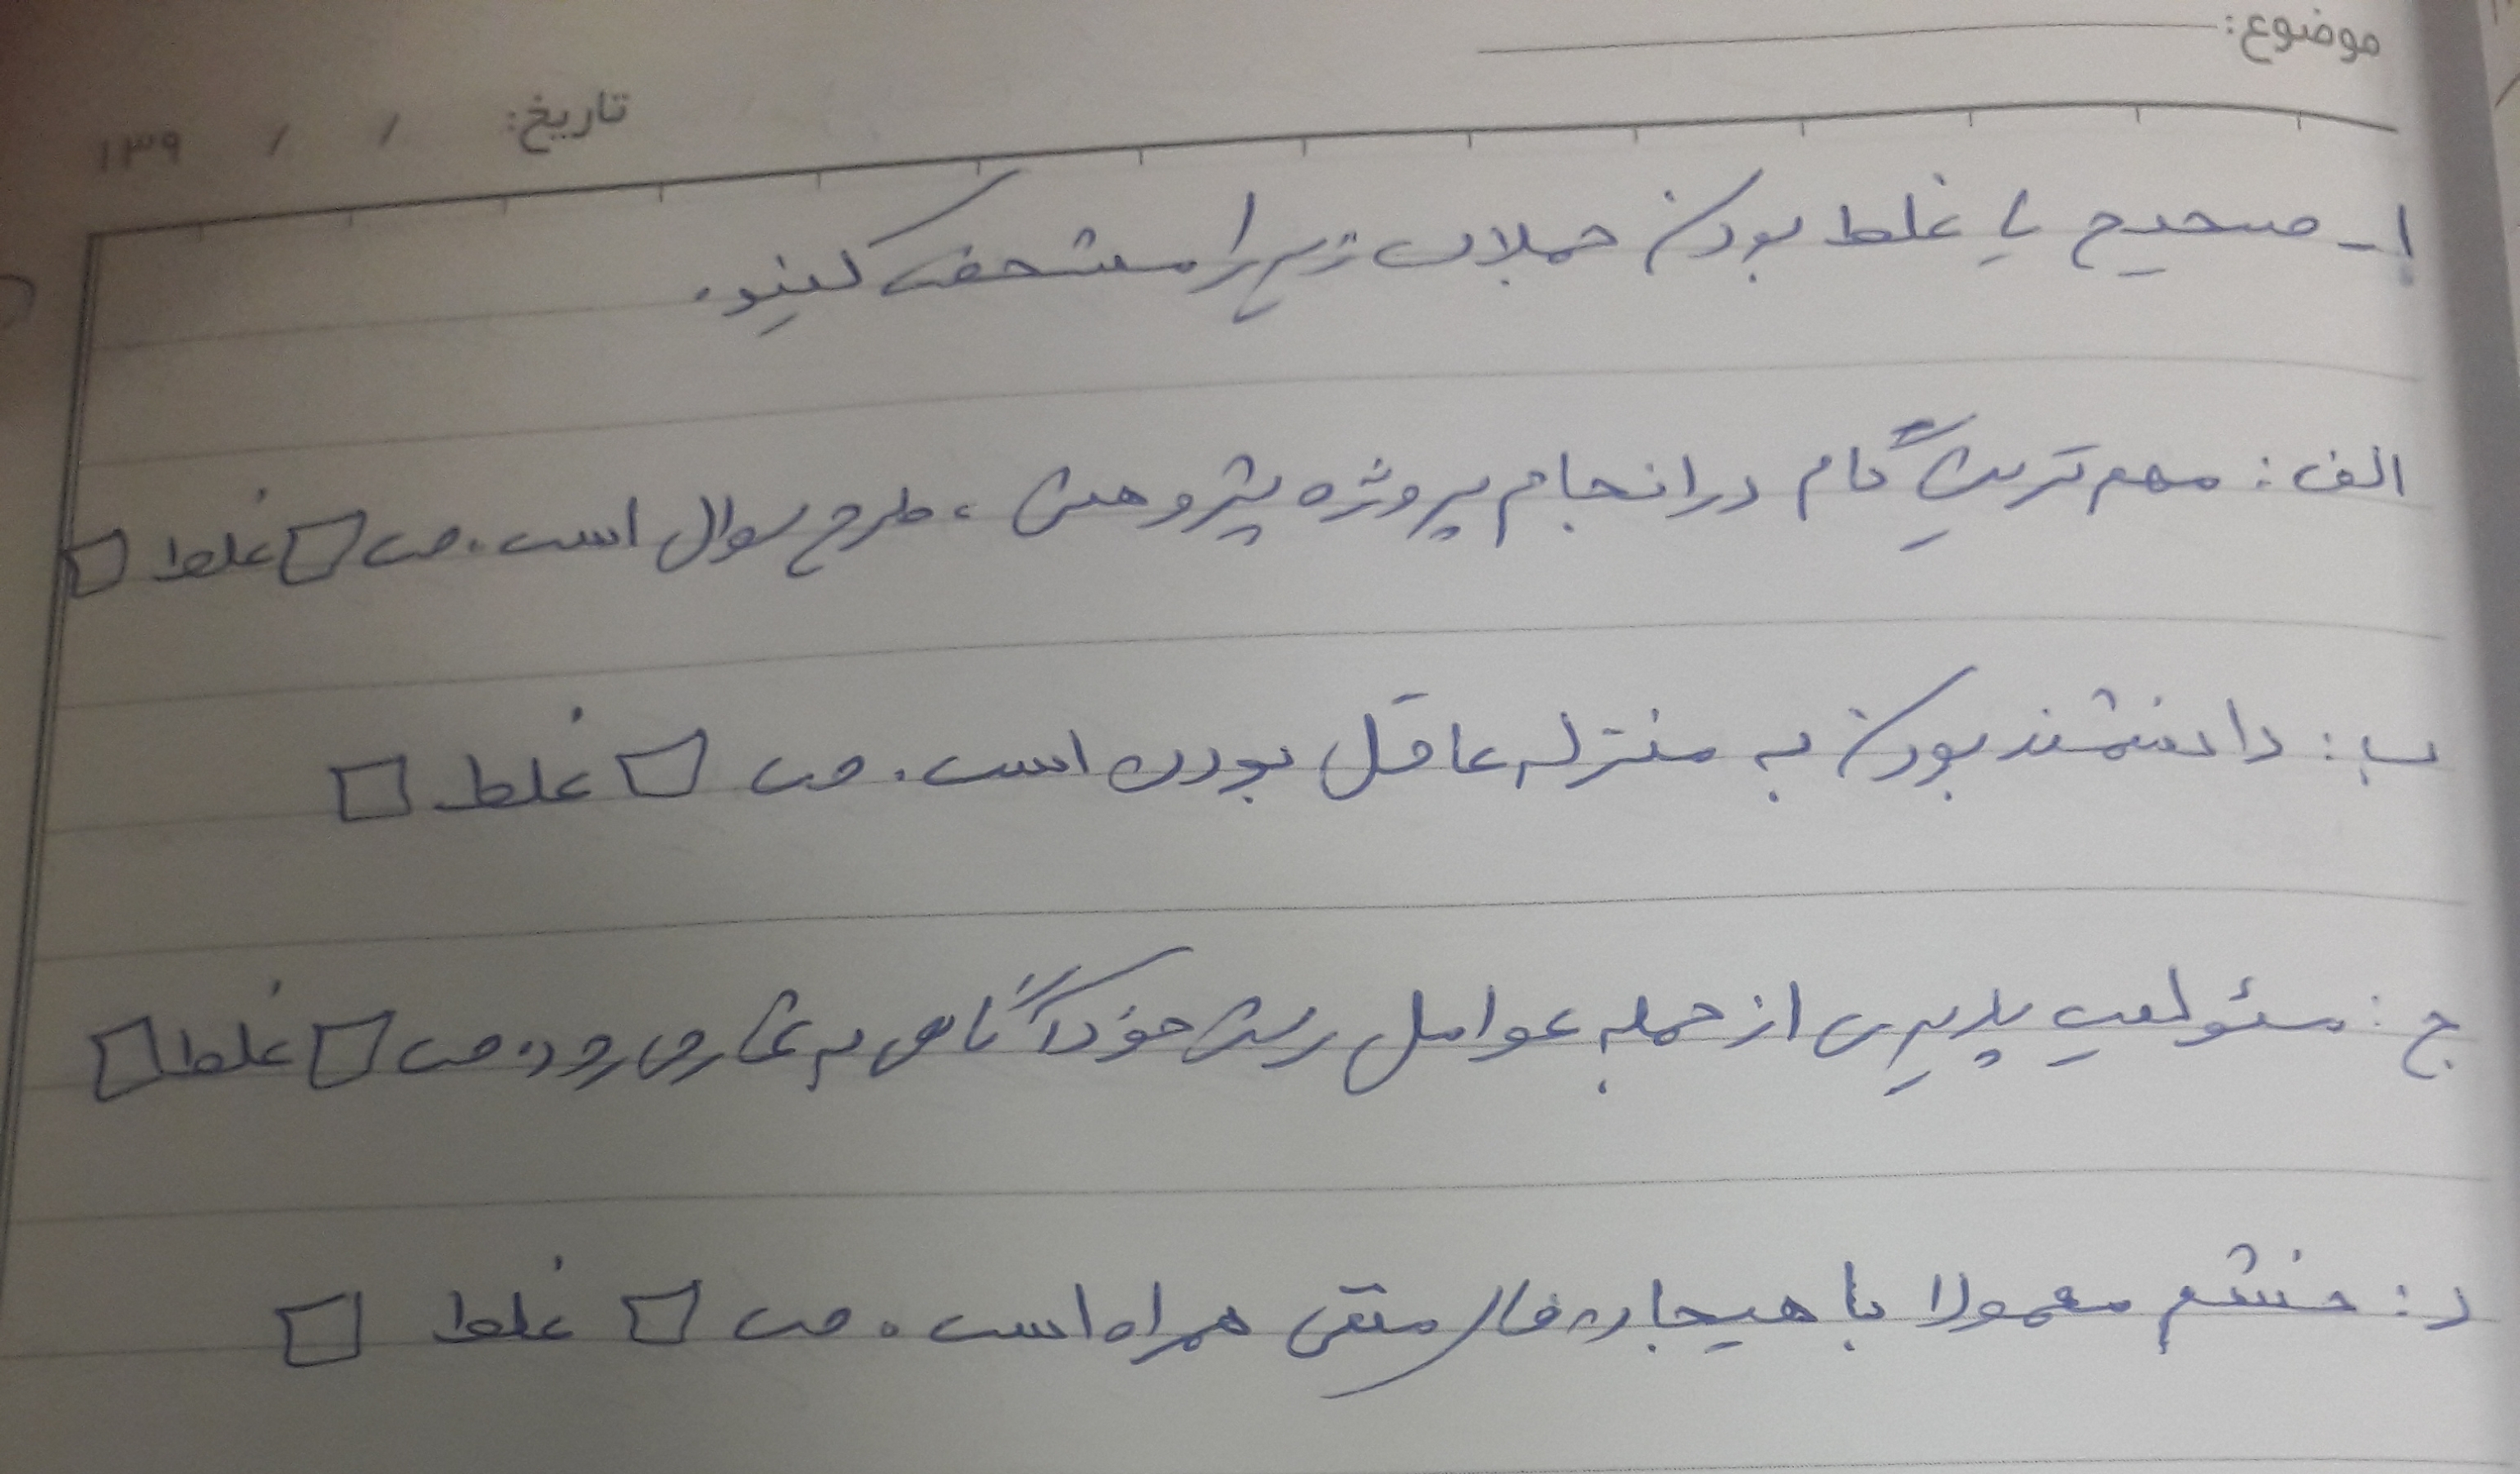 موضوع:
تاریخ: / / ۱۳۹
۱- صحیح یا غلط بودن جملات زیر را مشخص کنید.
الف: مهم ترین گام در انجام پروژه پژوهشی، طرح سوال است. ص□ غلط □
ب: دانشمند بودن به منزله عاقل بودن است. ص □ غلط □
ج: مسئولیت پذیری از جمله عوامل رشد خودآگاهی به شمار می رود. ص □ غلط □
د: خشم معمولا با هیجان های منفی همراه است. ص □ غلط □